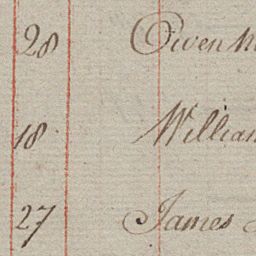 28 Owen
18 William
27 James